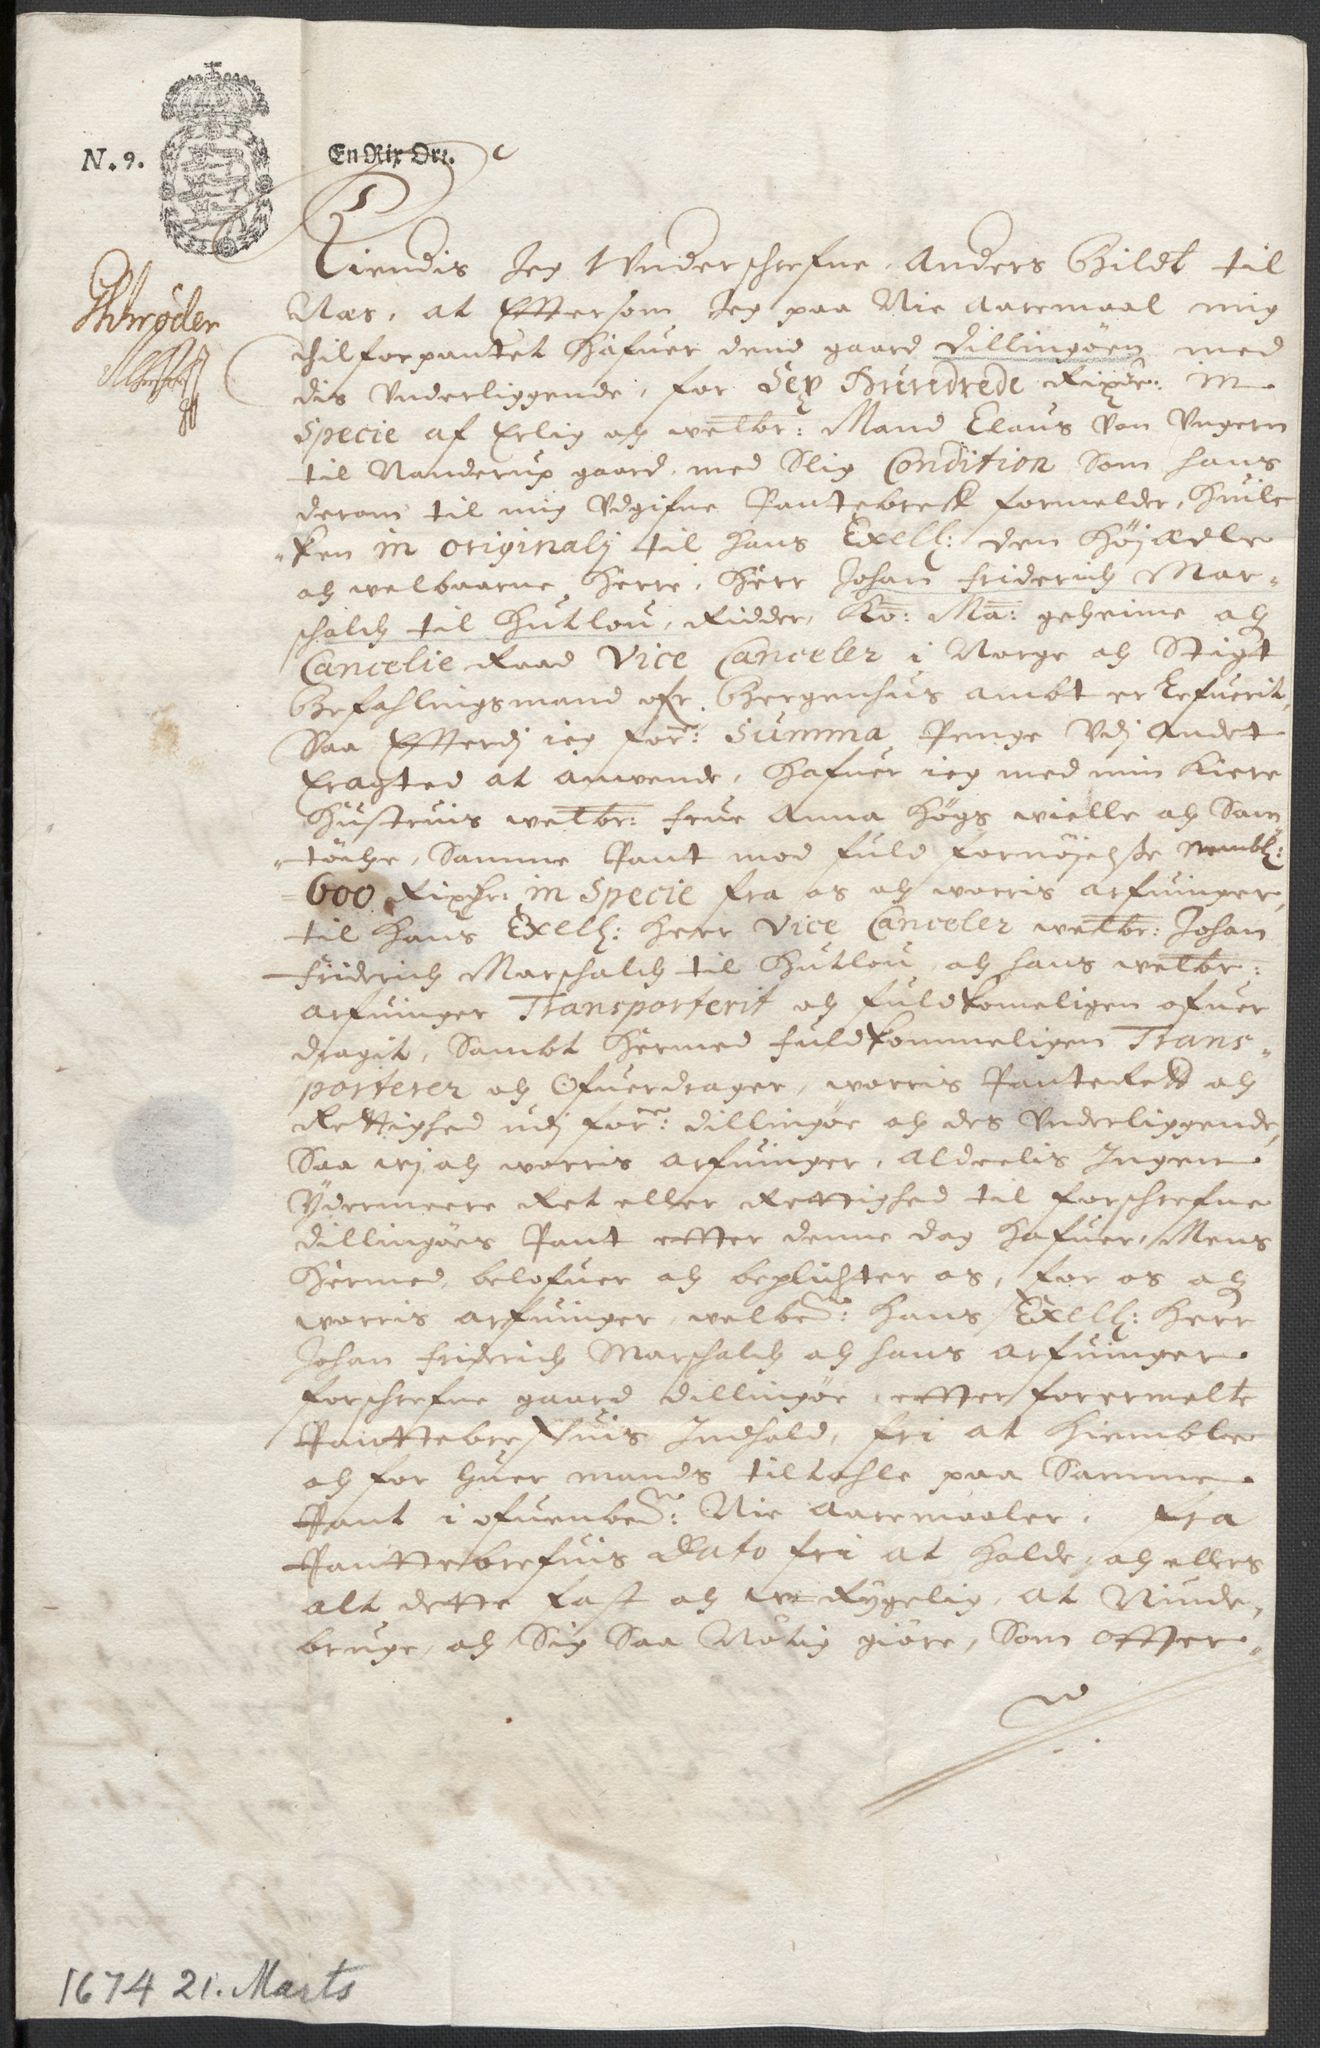 N. 9.
En Rix Ort.
Schrøder
Kiendis Jeg Vnderschrefne Anders Bildt til
Næs, at Effter som Jeg paa Nie aaremaal mig
tilforpantet hafuer dend gaard Dillingöen med
dis Vnderliggende, for Sex Hundrede Rixdr: in
Specie af Erlig och welbr: Mand Claus von Vngern
til Nanderup gaard, med Slig Condition Som hans
derom til mig Vdgifne Pantebref formelder, huil-
-ken in originalj til hans Excell: den Höjædle
och welbaarne Herre, Herr Johan Friderich Mar-
schalch til Hutlou, Ridder, Ko: Ma: geheime och
Cancelie Raad Vice Canceler i Norge och Stigt
Befahlingsmand ofr. Bergenhus ambt er lefuerit,
Saa Effterdj ieg for: Summa Penge Vdj Andet
Eragted at anvende, hafuer ieg med min Kiere
Hustruis welbr: Frue Anna Högs wielle och Sam
-töche, Samme Pant mod fuld fornöjelsse nembl:
600 Rixdr: in Specie fra os och worris arfuinger,
til hans Excell: Herr Vice Canceler welbr: Johan
Friderich Marschalch til Hutlou och hans welbr:
arfuinger Transporterit och fuldkomeligen ofuer
dragit, Sambt hermed fuldkommeligen Trans-
porterer och Ofuerdrager, worris Panterett och
Rettighed udj for: Dillingöe och des Vnderliggende,
Saa wj och worris arfuinger, aldeelis Ingen
Ydermeere Ret eller Rettighed til forschrefne
Dillingöes Pant effter denne dag hafuer, Mens
hermed belofuer och beplichter os, for os och
worris arfuinger, welbe: hans Excell: Herr
Johan Friderich Marschalch och hans arfuinger
forschrefne gaard Dillingöe, effter forermelte
Pantebrefuis Indhold, fri at hiemble
och for huer mands tiltahle paa Samme
Pant i ofuenbe: Nie aaremaaler, fra
Pantebrefuis Dato fri at holde, och ellers
alt dette fast och wRyggelig, at Niude,
bruge, och Sig Saa Nötig giöre, Som effter-
1674 21. Marts